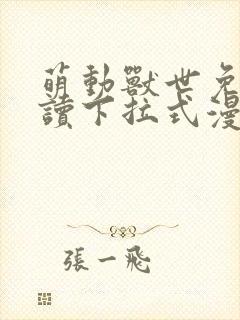 萌動獸世免
讀下拉式漫
張一飛